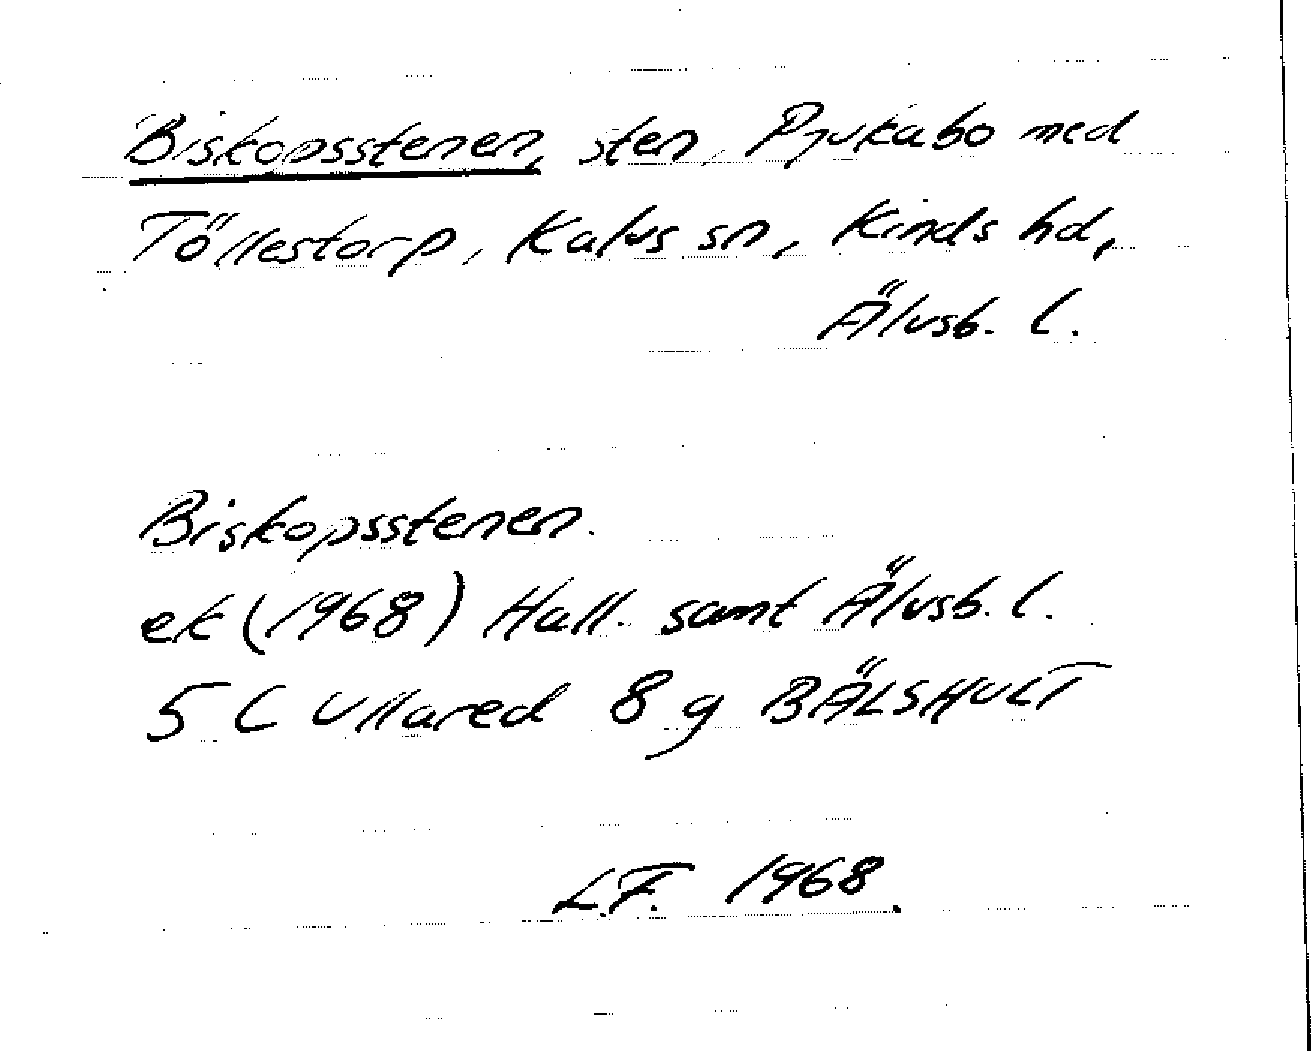 Biskopsstenen, sten, Pjukabo med
Töllestorp, Kalvs sn, Kinds hd,
Älvsb. l.
Biskopsstenen.
ek (1968) Hall. samt Älvsb. l.
5 C Ullared 8 g BÄLSHULT
L.F. 1968.